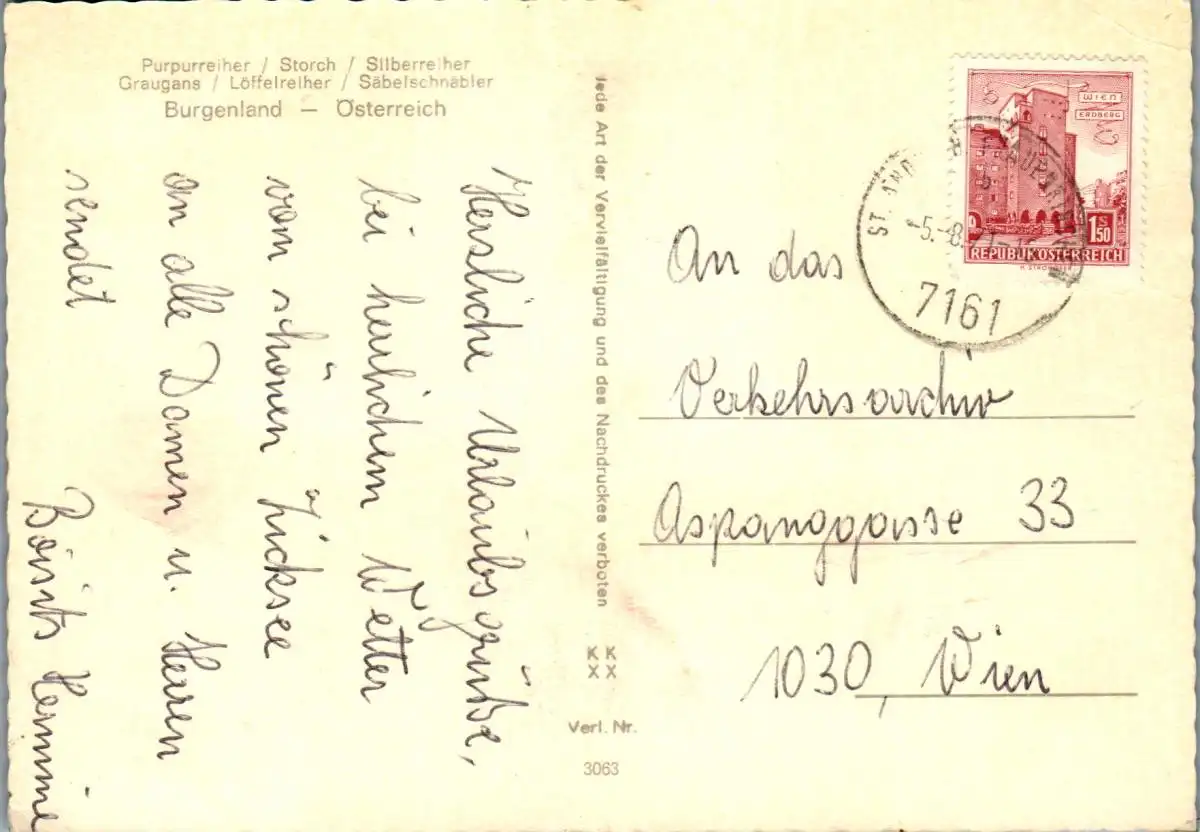 Purpurreiher / Storch / Silberreiher
Graugans / Löffelreiher / Säbelschnäbler
Burgenland – Österreich
Herzliche Urlaubsgrüße,
bei herrlichem Wetter
vom schönen Zicksee
an alle Damen u. Herren
sendet
Hermine
Jede Art der Vervielfältigung und des Nachdruckes verboten
K K
X X
Verl. Nr.
3063
WIEN
ERDBERG
S
1 50
REPUBLIK ÖSTERREICH
ST. ANDRÄ
-5.-8.
7161
An das
Verkehrsarchiv
Aspanggasse 33
1030, Wien